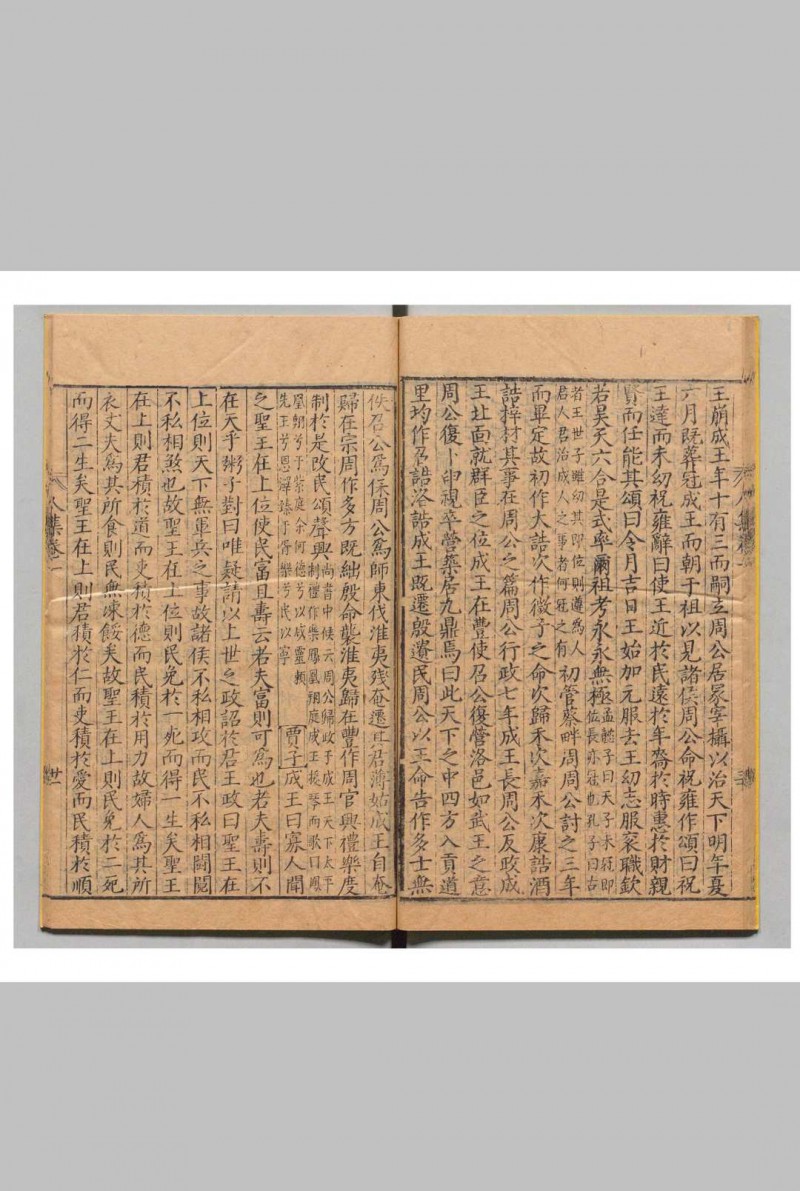 王崩成王年十有三而嗣立周公居冢宰攝以治天下明年夏
六月既葬冠成王而朝于祖以見諸侯周公命祝雍作頌曰祝
王達而未幼祝雍辭曰使王近於民遠於年嗇於時惠於財親
賢而任能其頌曰令月吉日王始加元服去王幼志服衮職欽
若昊天六合是式率爾祖考永永無極孟懿子曰天子未冠即位長亦冠也孔子曰古
者王世子雖幼其即位則遵為人君人君治成人之事者何冠之有初管蔡畔周周公討之三年
而畢定故初作大誥次作微子之命次歸禾次嘉禾次康誥酒
誥梓材其事在周公之篇周公行政七年成王長周公反政成
王北面就群臣之位成王在豐使召公復營洛邑如武王之意
周公復卜申視卒營築居九鼎焉曰此天下之中四方入貢道
里均作召誥洛誥成王既遷殷遺民周公以王命告作多士無
佚召公爲保周公爲師東伐淮夷殘奄遷其君薄姑成王自奄
歸在宗周作多方既絀殷命襲淮夷歸在豐作周官興禮樂度
制於是改民頌聲興尚書中候云周公歸政于成王天下太平制禮作樂鳳凰翔庭成王援琴而歌曰鳳
凰翔兮于紫庭余何德兮以感靈賴先王兮恩澤臻于胥樂兮民以寧賈子成王曰寡人聞
之聖王在上位使民富且壽云若夫富則可爲也若夫壽則不
在天乎粥子對曰唯疑請以上世之政詔於君王政曰聖王在
上位則天下無軍兵之事故諸侯不私相攻而民不私相鬪鬩
不私相煞也故聖王在上位則民免於一死而得一生矣聖王
在上則君積於道而吏積於德而民積於用力故婦人爲其所
衣丈夫爲其所食則民無凍餒矣故聖王在上則民免於二死
而得二生矣聖王在上則君積於仁而吏積於愛而民積於順
人集卷一
廿一